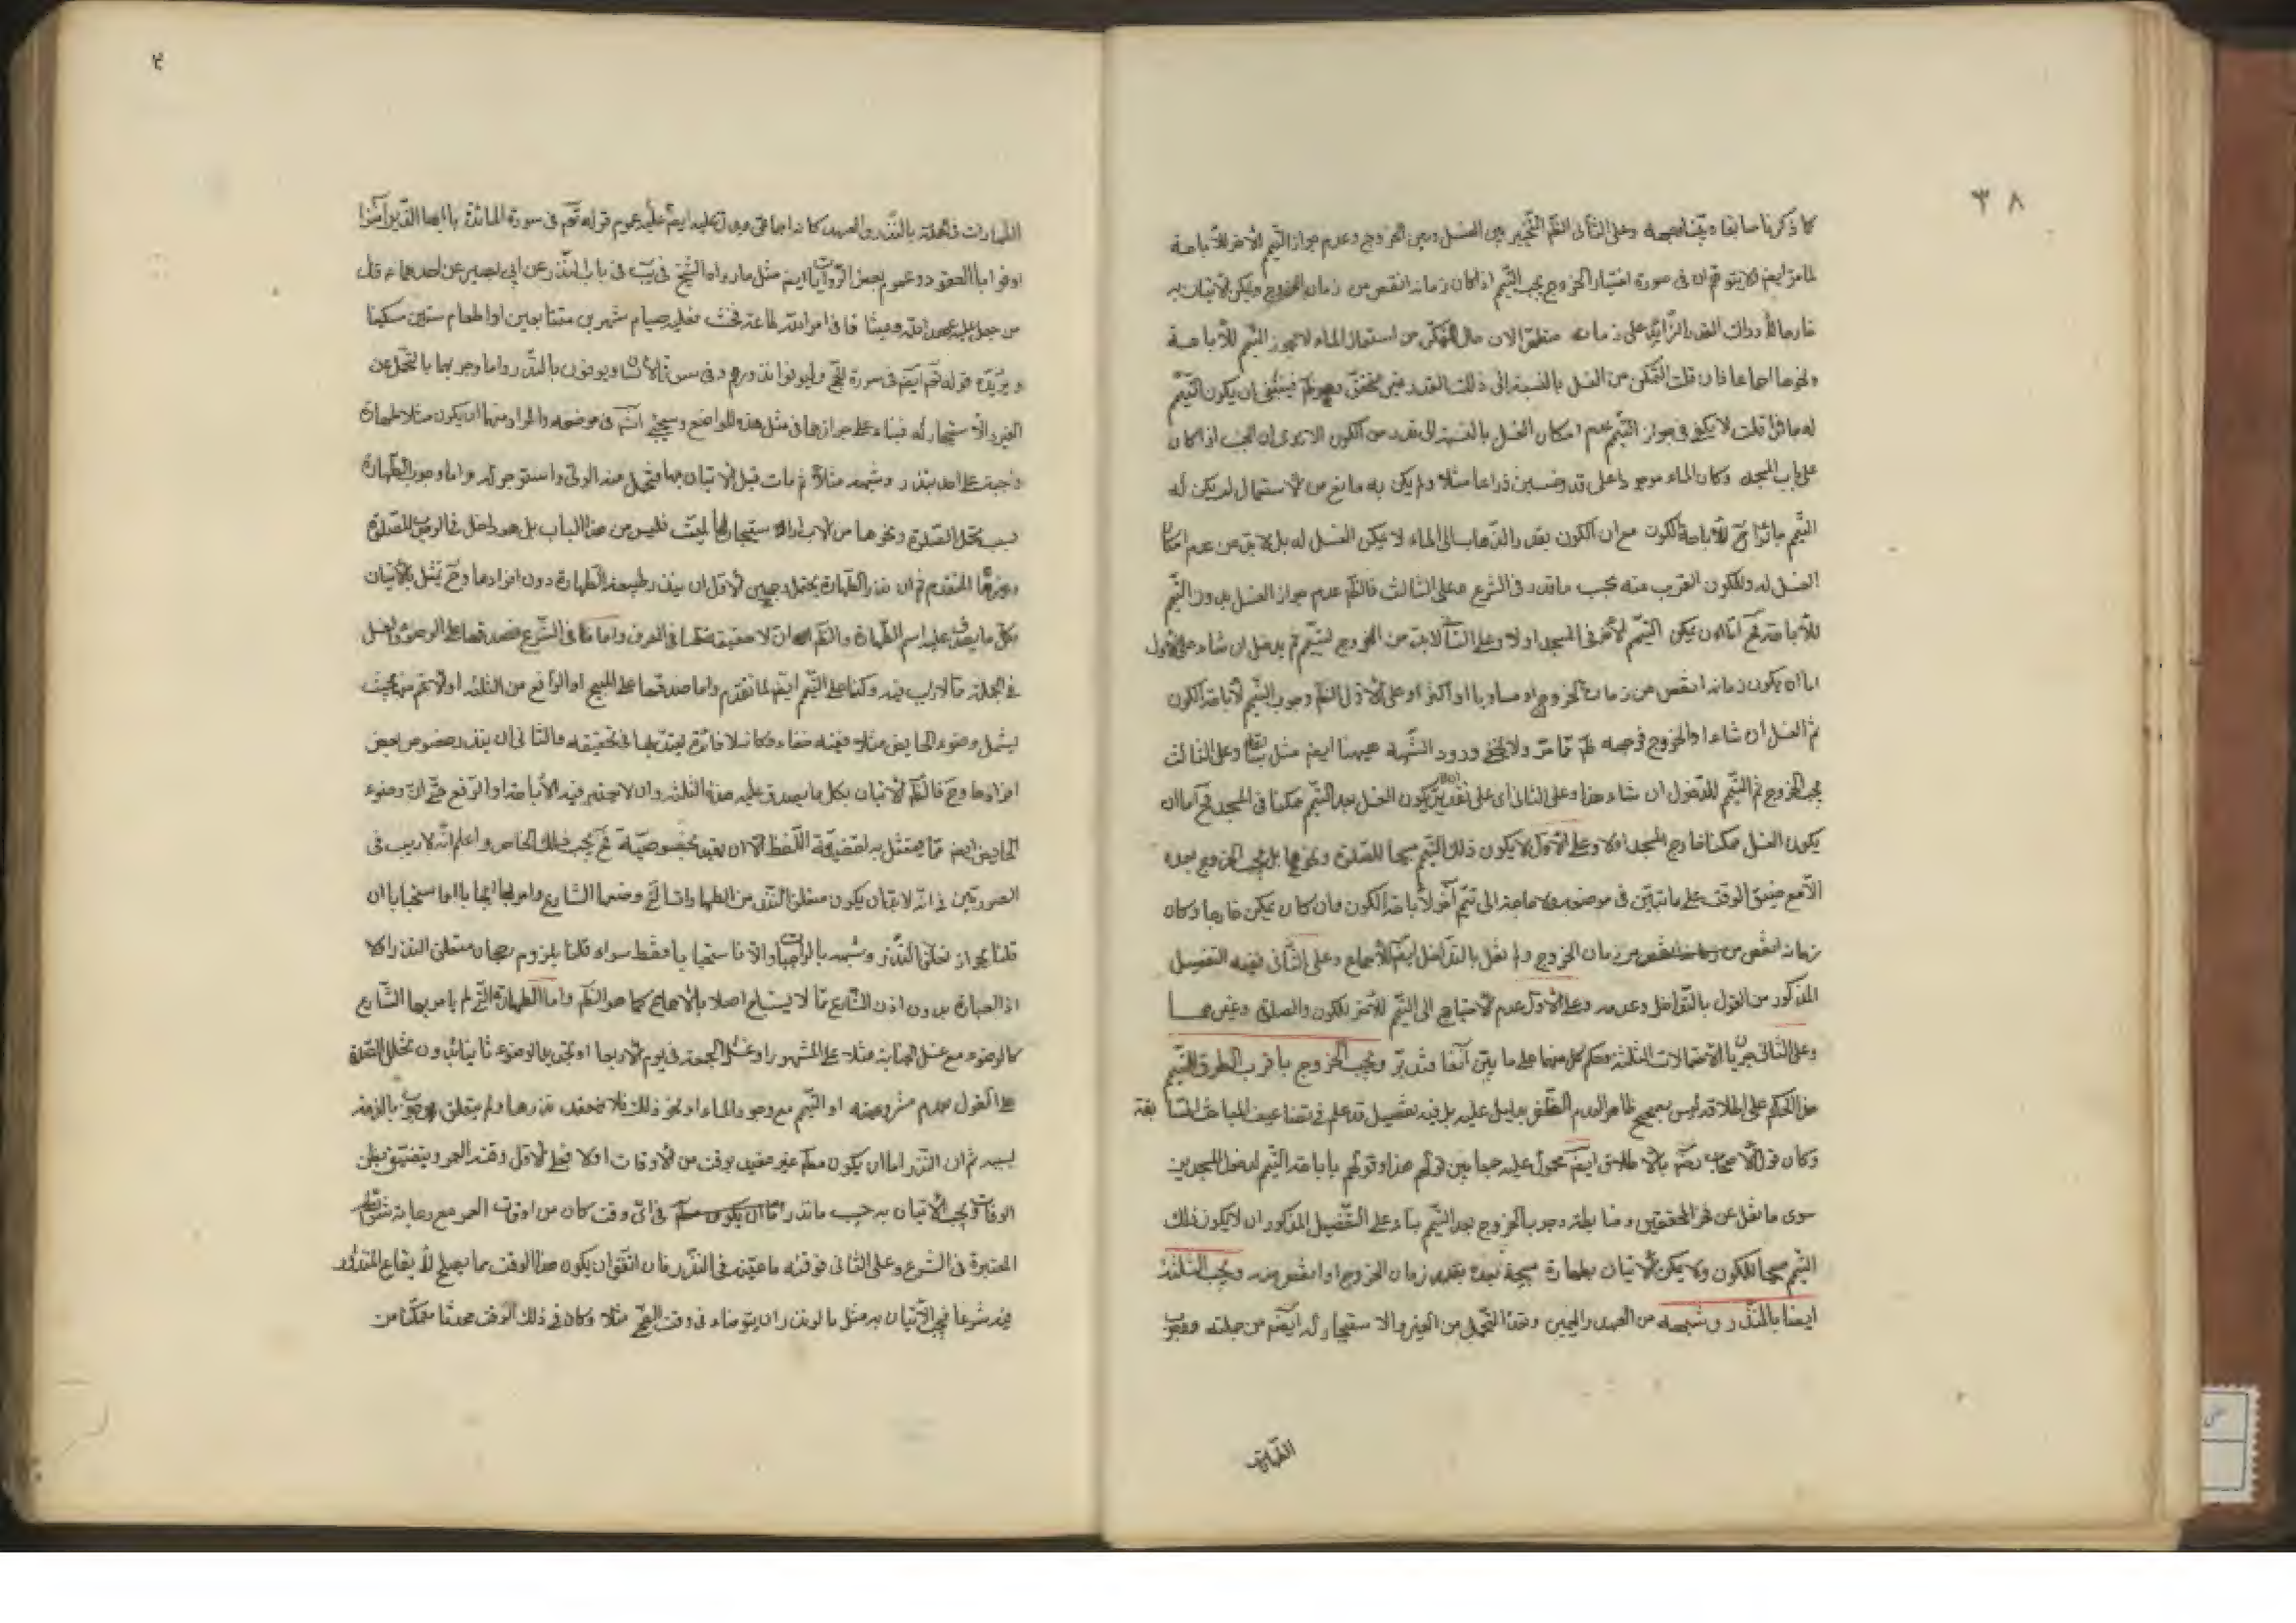 ٣٨
كما ذكرنا سابقا وعلى الثانى الظّم التخيير بين الغسل وبين الخروج وعدم جواز التيمم الآخر للأباحة
لما مرّ ايضا لا يتوهم ان فى صورة اختيار الخروج يجب التيمم اذا كان زمانه انقص من زمان الخروج ويمكن الاتيان به
خارجا لأدراك القدر الزّايد على زمانه متطهّرا لان حال التمكن من استعمال الماء لا يجوز التيمم للأباحة
ونحوها اجماعا فان قلت التمكن من الغسل بالنسبة الى ذلك القدر غير متحقق فينبغى ان يكون التيمم
له جائزا قلت لا يكفى فى جواز التيمم عدم امكان الغسل بالنسبة الى قدر من الكون الا ترى ان الجنب اذا كان
على باب المسجد وكان الماء موجودا على قدر خمسين ذراعا مثلا ولم يكن به مانع من الاستعمال لم يكن له
التيمم جائزا ح لأباحة الكون مع ان الكون بقدر الذهاب الى الماء لا يمكن الغسل له بل لا بد من عدم امكان
الغسل له وللكون القريب منه بحسب ما قدر فى الشرع وعلى الثالث فالظم عدم جواز الغسل بدون التيمم
للأباحة ثم امّا ان يمكن التيمم الآخر فى المسجد اولا وعلى الثانى لا بد من الخروج ليتيمم ثم يدخل ان شاء وعلى الأول
اما ان يكون زمانه انقص من زمان الخروج او مساويا او اكثر وعلى الأول الظم وجوب التيمم لأباحة الكون
ثم الغسل ان شاء او الخروج فوجهه ظم ممّا مرّ ولا يخفى ورود الشّبهة هيهنا ايضا مثل سابقا وعلى الثالث
يجب الخروج ثم التيمم للدخول ان شاء هذا وعلى الثانى اى على تقدير ان لا يكون الغسل بعد التيمم ممكنا فى المسجد فح اما ان
يكون الغسل ممكنا خارج المسجد اولا وعلى الأول لا يكون ذلك التيمم مبيحا للصلوة ونحوها بل يجب الخروج بعده
الا مع ضيق الوقت على ما تبيّن فى موضعه ولا حاجة الى تيمم آخر لأباحة الكون وان كان يمكن خارجا وكان
زمانه انقص من زمان الخروج ولم نقل بالتداخل ايضا للأجماع وعلى الثانى فيه التفصيل
المذكور من القول بالتداخل وعدمه وعلى الأول عدم الاحتياج الى التيمم الآخر للكون والصلوة وغيرهما
وعلى الثانى جريان الاحتمالات الثلثة وحكم كل منها على ما بيّن آنفا فتدبّر ويجب الخروج باقرب الطرق للتيمم
هذا الحكم على اطلاقه ليس بصحيح ظاهرا لعدم الظفر بدليل عليه بل فيه تفصيل قد علم فى تضاعيف المباحث السابقة
وكان قول الاصحاب رضهم بالاطلاق ايضا محمول عليه جمعا بين قولهم هذا وقولهم باباحة التيمم لدخول المسجدين
سوى ما نقل عن فخر المحققين وضابطة وجوب الخروج بعد التيمم بناء على التفصيل المذكور ان لا يكون ذلك
التيمم مبيحا للكون ولا يمكن الاتيان بطهارة مبيحة بعده بقدر زمان الخروج او انقص منه ويجب الثلثة
ايضا بالنذر وشبهه من العهد واليمين وعدّ التحمل من الغير والاستيجار له ايضا من جملته ووجوب
الطهارات
الطهارات فى الجملة بالنذر والعهد كانه اجماعى ويدل عليه ايضا عموم قوله تعم فى سورة المائدة يا ايها الذين آمنوا
اوفوا بالعقود وعموم بعض الروايات ايضا مثل ما رواه الشيخ فى يب فى باب النذر عن ابى بصير عن احدهما ع قال
من جعل عليه عهد الله وميثاقه فى امر لله طاعة فحنث فعليه صيام شهرين متتابعين او اطعام ستين مسكينا
ويؤيّده قوله تعم ايضا فى سورة الحج وليوفوا نذورهم وفى سورة الأنسان ويوفون بالنذر واما وجوبها بالتحمل عن
الغير والأستيجار له فبناء على جوازها فى مثل هذه المواضع وسيجئ انش فى موضعه والمراد منهما ان يكون مثلا طهارة
واجبة على احد بنذر وشبهه مثلا ثم مات قبل الاتيان بها فتحمل عنه الولى او استوجر له واما وجوب الطهارة
بسبب تحمل الصلوة ونحوها من الاب او الاستيجار لها لميّت فليس من هذا الباب بل هو داخل فى الوجوب للصلوة
وغيرها المتقدم ثم ان نذر الطهارة يحتمل وجهين الأول ان ينذر طبيعة الطهارة دون افرادها وح يمتثل بالاتيان
بكل ما يصدق عليه اسم الطهارة والظم ان لا حقيقة لها فى العرف واما فى الشرع فصدقها على الوضوء والغسل
فى الجملة مما لا ريب فيه وكذا على التيمم ايضا لما تقدم واما صدقها على المبيح او الرافع من الثلثة او الاعم منه بحيث
يشمل وضوء الحايض مثلا ففيه خفاء وكانه لا فائدة يعتد بها فى تحقيقه والثانى ان ينذر خصوص بعض
افرادها وح فالظم الاتيان بكل ما يصدق عليه هذه الثلثة وان لا يعتبر فيه الأباحة او الرفع حتى ان وضوء
الحايض ايضا مما يمتثل به لقضيّة اللفظ الا ان يقيد بخصوصيّة فح يجب ذلك الخاص واعلم انه لا ريب فى
الصورتين فى انه لا بد ان يكون متعلق النذر من الطهارات التى وضعها الشارع وامر بها ايجابا او استحبابا ان
قلنا بجواز تعلق النذر وشبهه بالواجبات والا فاستحبابا فقط سواء قلنا بلزوم رجحان متعلق النذر او لا
اذ العبادة بدون اذن الشارع مما لا يستباح اصلا بالاجماع كما هو الظم واما الطهارة التى لم يامر بها الشارع
كالوضوء مع غسل الجنابة مثلا على المشهور او غسل الجمعة فى يوم الأربعا او تجديد الوضوء ثانيا بدون تخلل الصلوة
على القول بعدم مشروعيته او التيمم مع وجود الماء او نحو ذلك فلا ينعقد نذرها ولم يتعلق وجوب بالذمة
بسببه ثم ان النذر اما ان يكون مطلقا غير مقيد بوقت من الاوقات اولا فعلى الأول وقته العمر ويتضيق بظن
الوفات ويجب الأتيان به حسب ما نذر فى اى وقت كان من اوقات العمر مع رعاية شرايطه
المعتبرة فى الشرع وعلى الثانى فوقته ما عيّنه فى النذر فان اتفق ان يكون هذا الوقت مما يصلح لأيقاع المنذور
فيه شرعا فيجب الأتيان به مثل ما لو نذر ان يتوضاء فى وقت الصّبح مثلا وكان فى ذلك الوقت محدثا متمكنا من